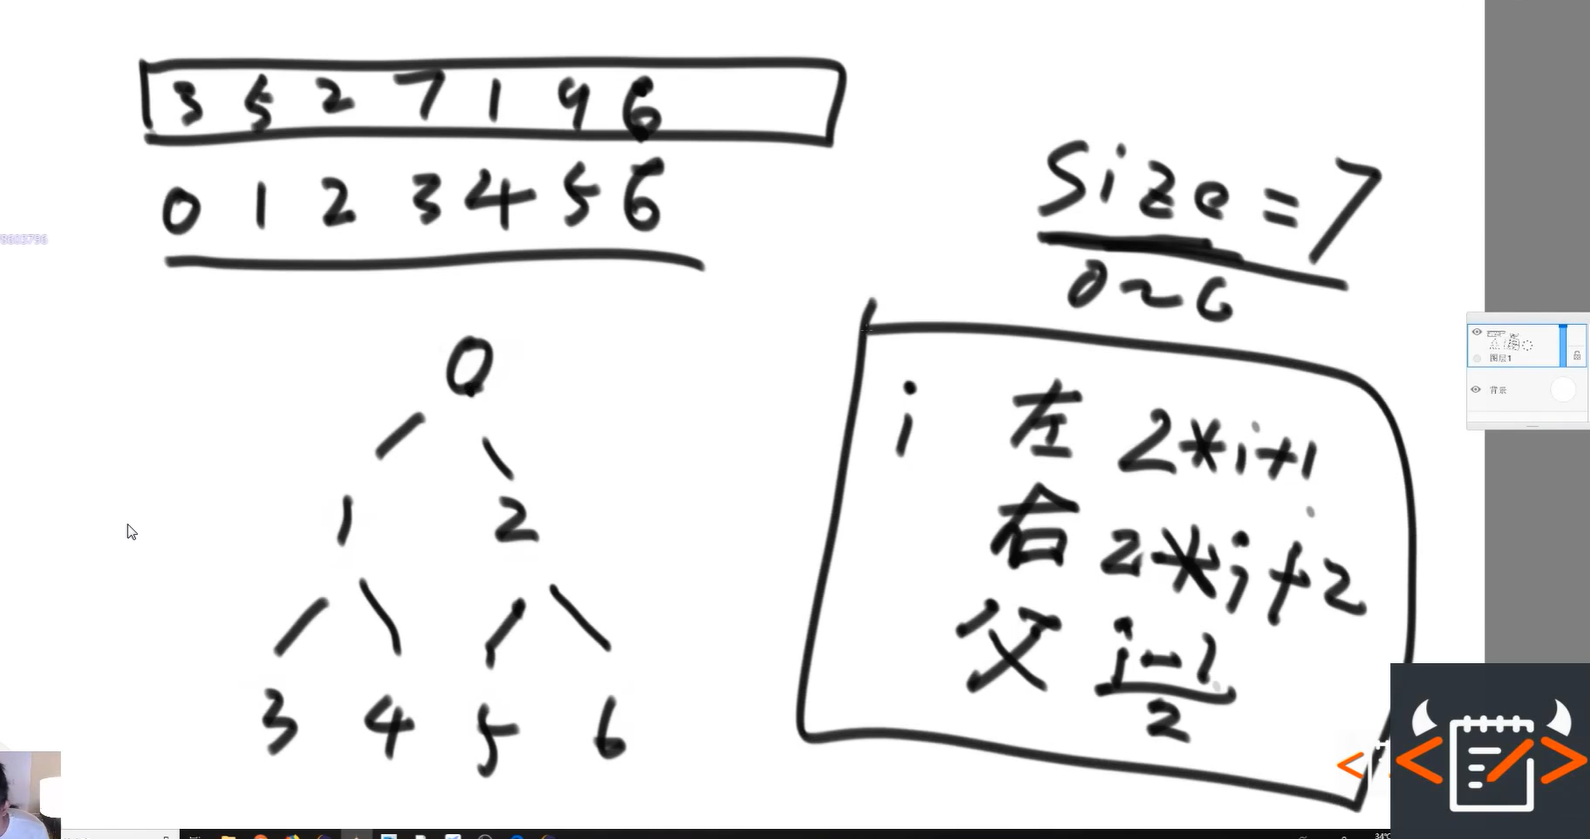 3 5 2 7 1 9 6
0 1 2 3 4 5 6
size=7
0~6
8603796
0
1 2
3 4 5 6
i 左 2*i+1
右 2*i+2
父 i-1
2
图层1
背景
34°C